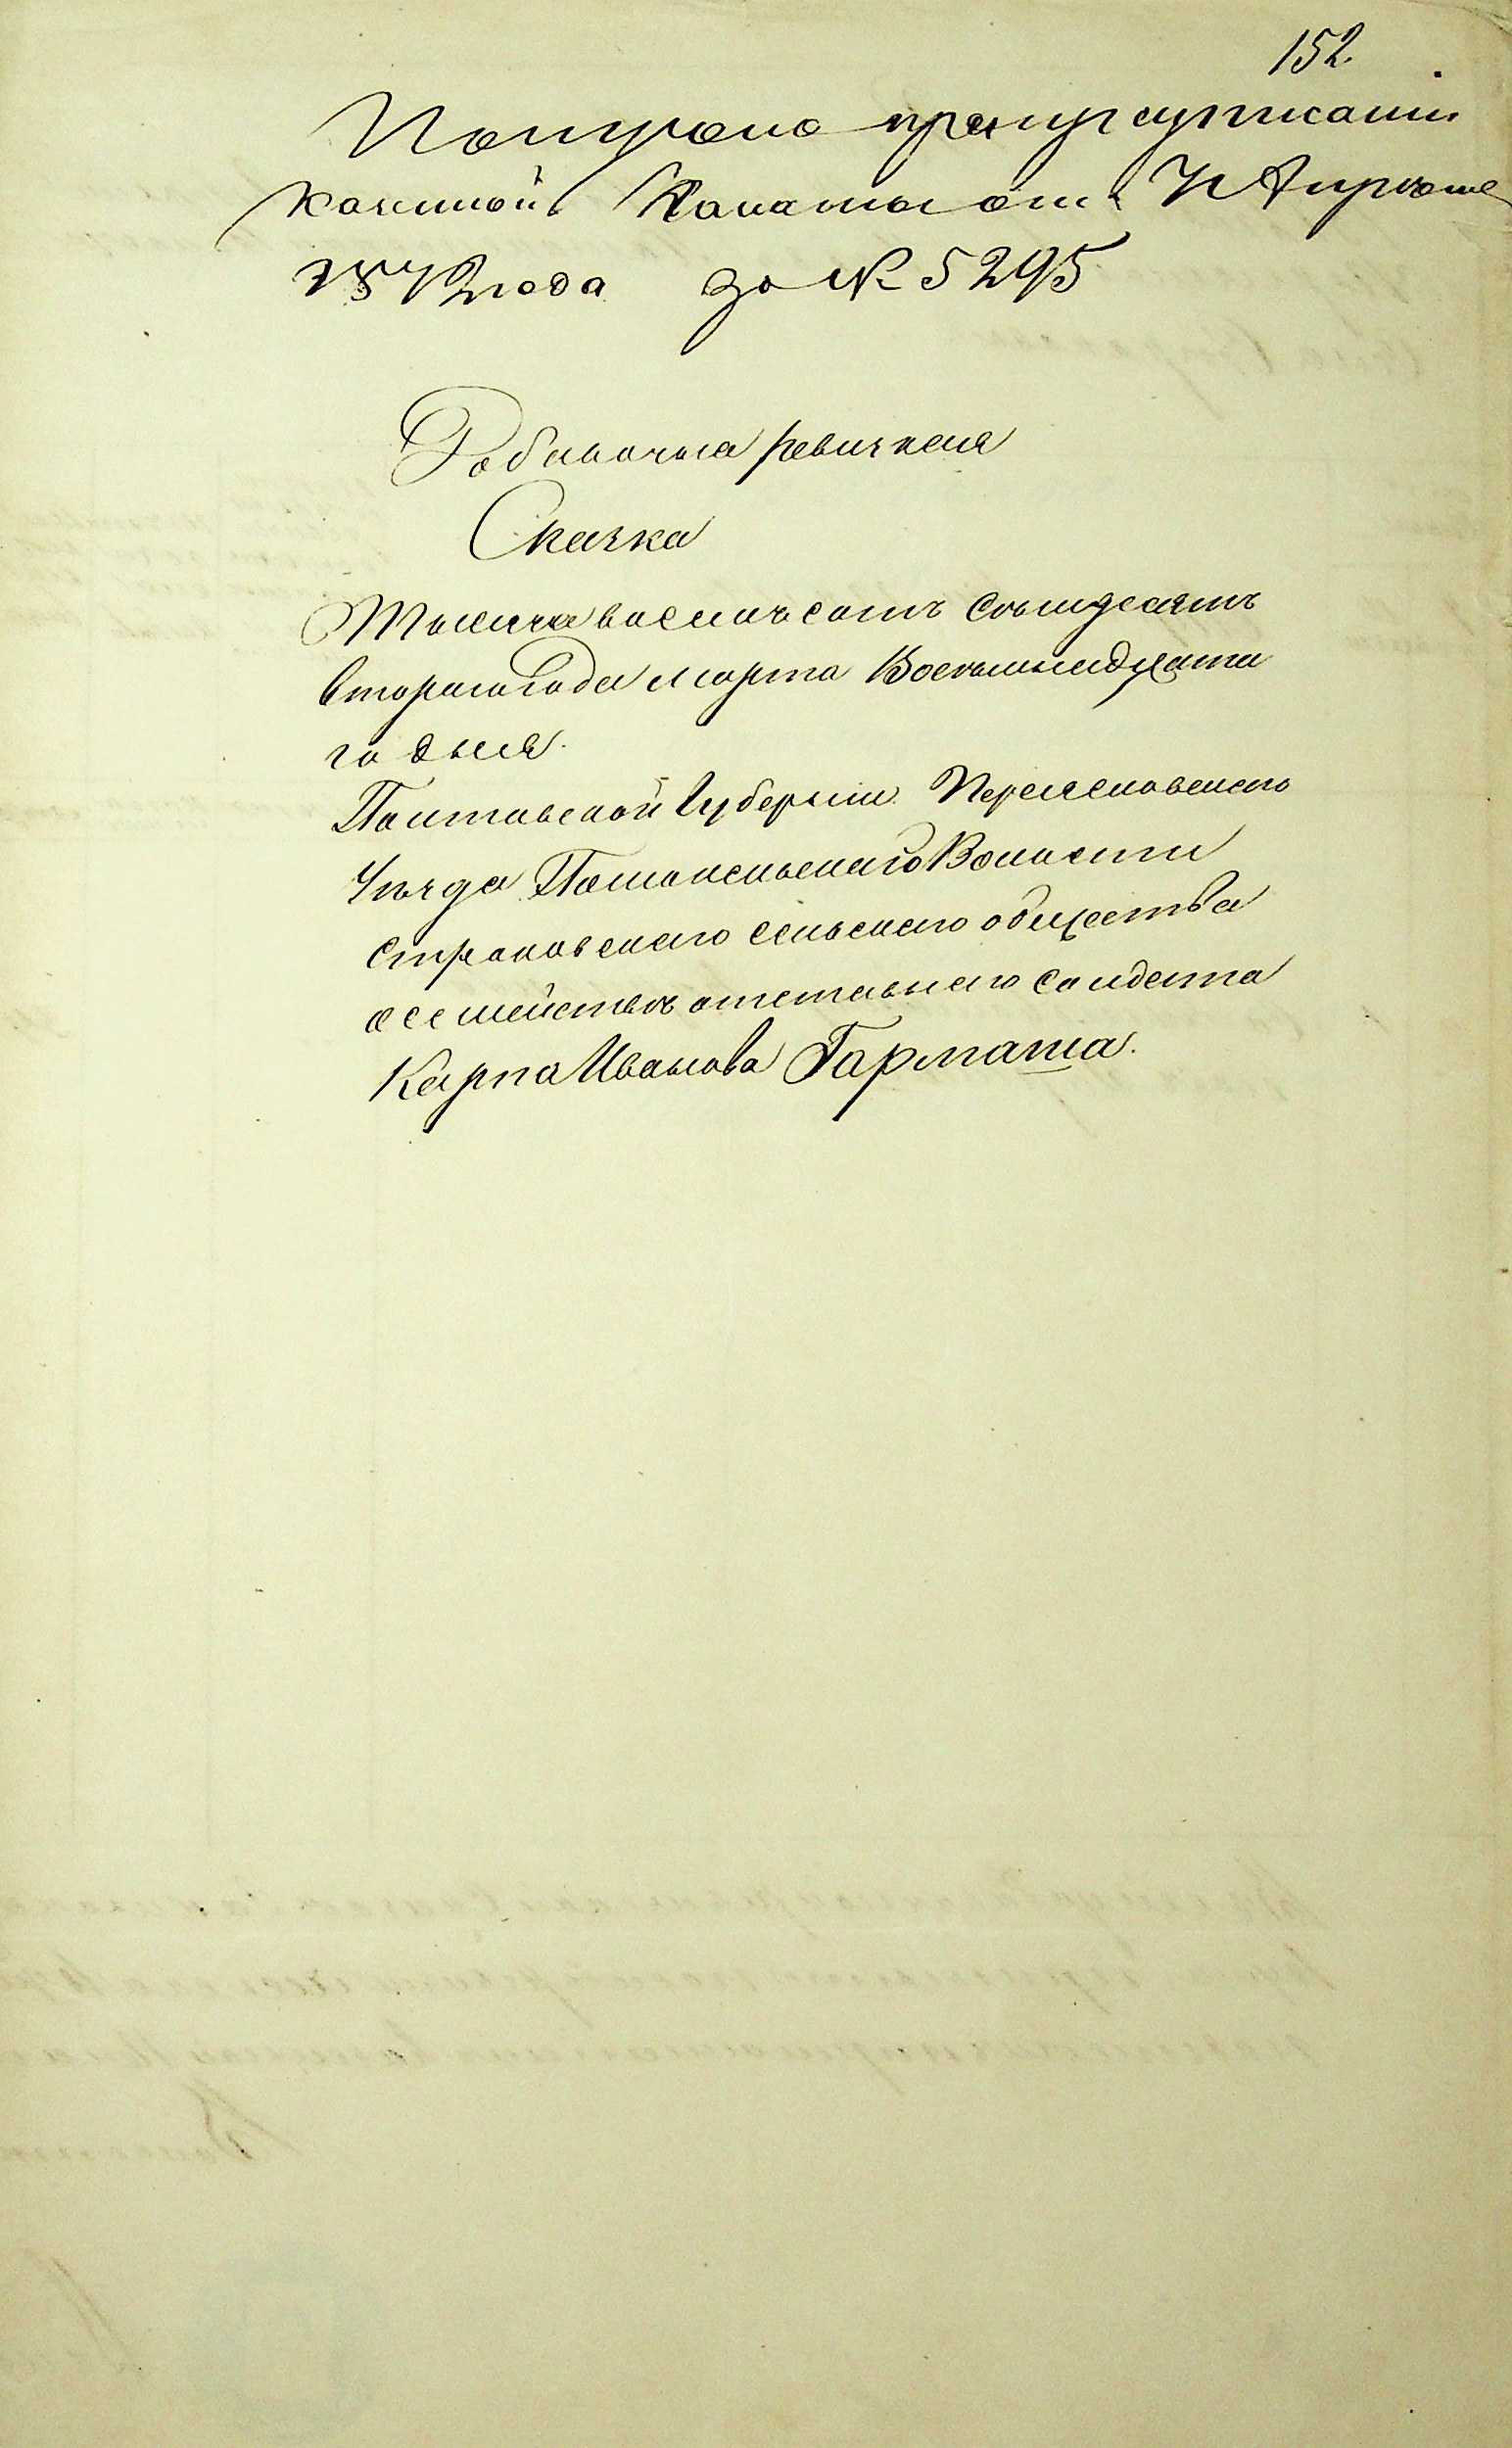 152.
Получено при предписаніи
казенной Палаты отъ 11 Апреля
1872 года за № 5295
Добавочная ревизкая
Сказка
Тысяча восемъсотъ семидесятъ
втораго Года марта Восемьнадцата
го дня.
Полтавской Губерніи Переяславскаго
Уѣзда Помоклскаго Волости
строковскаго сельскаго общества
о семействѣ отставнаго солдата
Карпа Иванова Гармаша.